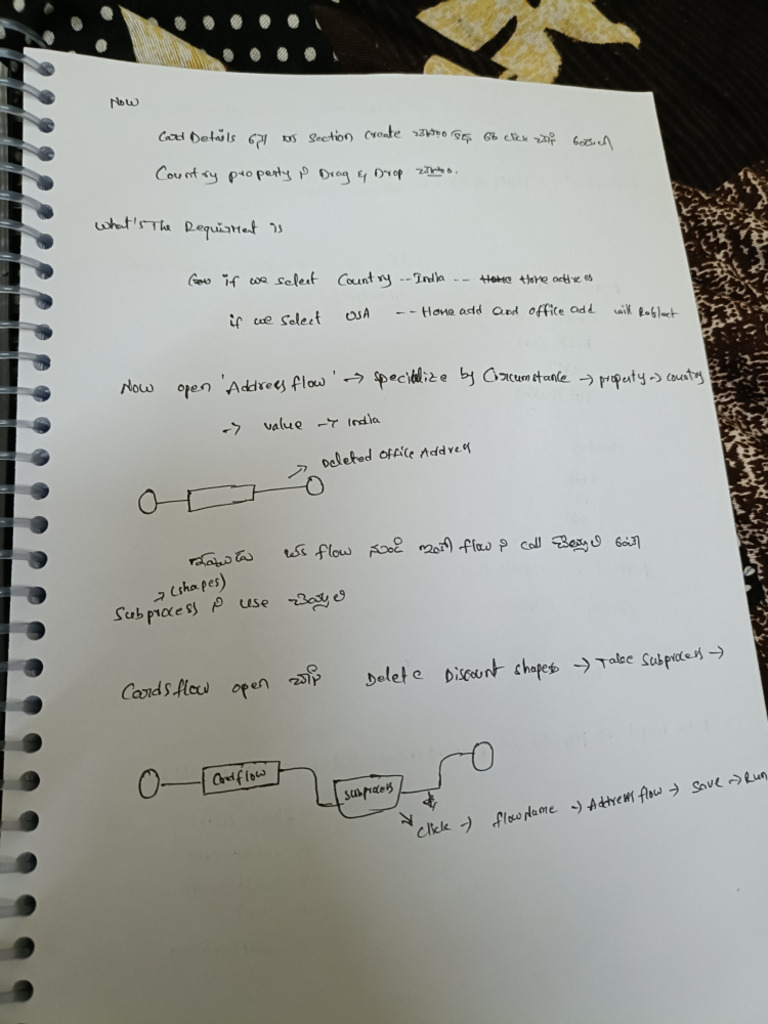 Now
Card Details లో section create click చేసి
Country property ని Drag & Drop చేశాం.
What's The Requirment is
if we select Country -- India -- Home address
if we select USA -- Home add and office add will Reflect
Now open 'Address flow' → specialize by Circumstance → property → country
→ value → India
→ Deleted Office Address
మనము ఒక flow నుంచి ఇంకో flow ని call చెయ్యాలి అంటే
→ (shapes)
Subprocess ని use చెయ్యాలి
Cardsflow open చేసి Delete Discount shapes → Take Subprocess →
Cardflow
Subprocess
Click → flowName → Address flow → save → Run